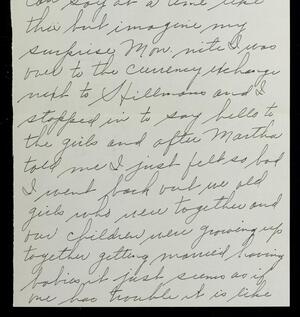 can say at a time like
this but imagine my
surprise Mon. nite I was
over to the currency exchange
next to Stillmans and I
stopped in to say hello to
the girls and after Martha
told me I just felt so bad
I went back out we old
girls who were together and
our children were growing up
together getting married having
babies it just seems as if
one has trouble it is like